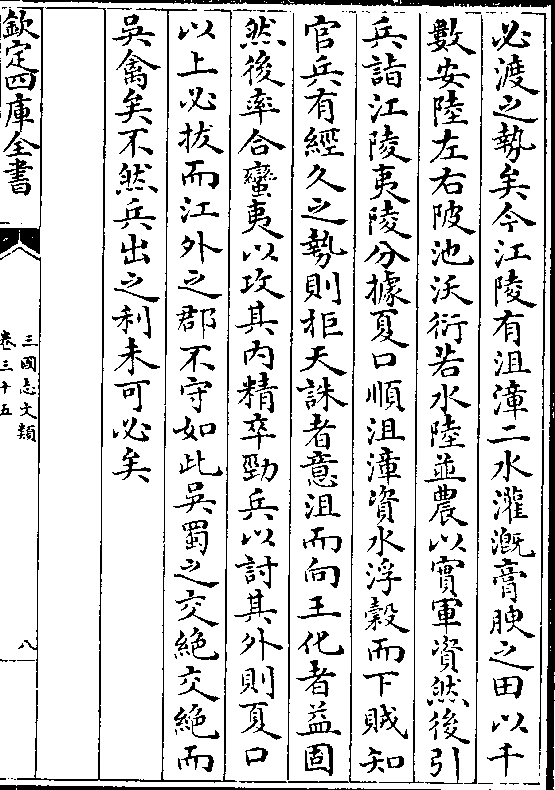 必渡之勢矣今江陵有沮漳二水灌溉膏腴之田以千
數安陸左右陂池沃衍若水陸並農以實軍資然後引
兵詣江陵夷陵分據夏口順沮漳資水浮穀而下賊知
官兵有經久之勢則拒天誅者意沮而向王化者益固
然後率合蠻夷以攻其内精卒勁兵以討其外則夏口
以上必拔而江外之郡不守如此吳蜀之交絶交絶而
吳禽矣不然兵出之利未可必矣
欽定四庫全書
三國志文類
卷三十五
八